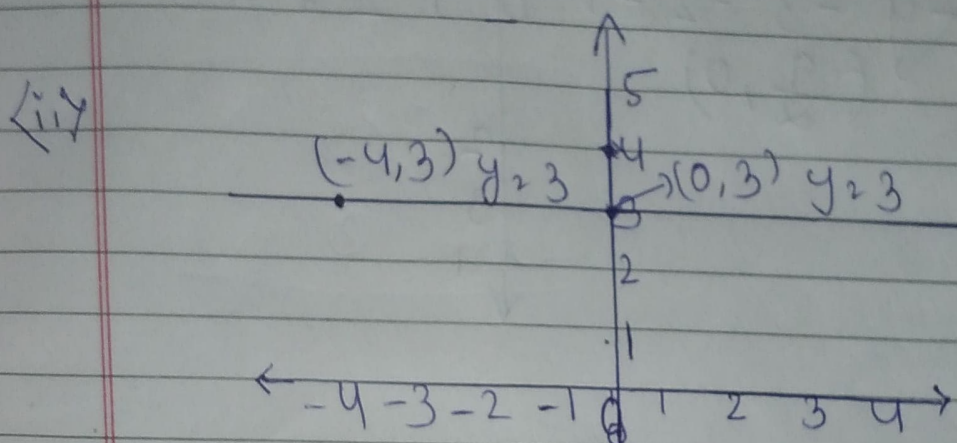 <ii>
5
4
(-4,3) y=3
3
(0,3) y=3
2
1
-4 -3 -2 -1 0 1 2 3 4